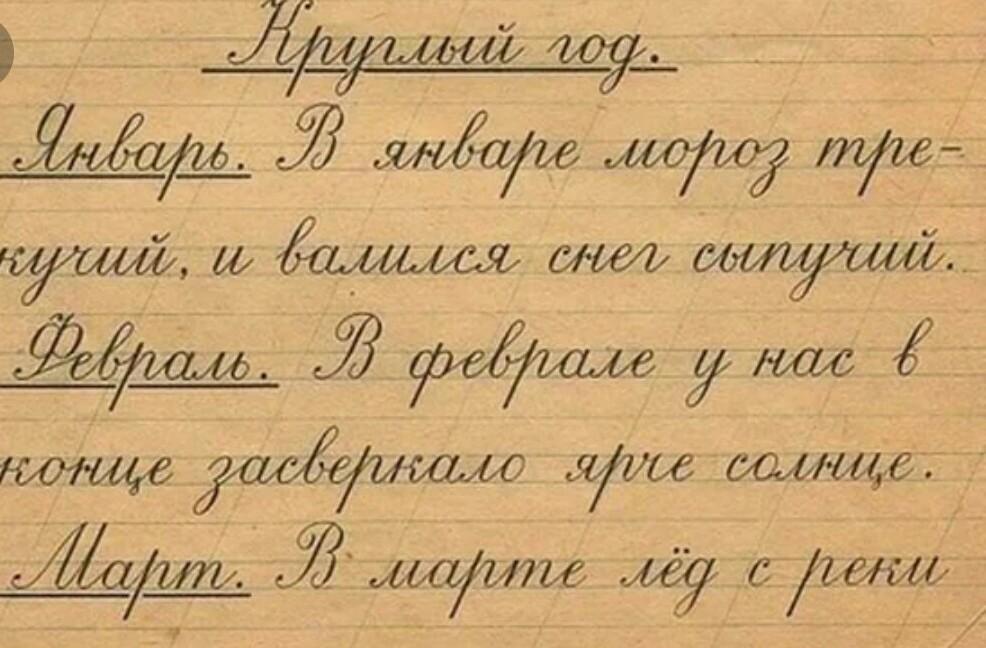 Круглый год.
Январь. В январе мороз тре-
кучий, и валился снег сыпучий.
Февраль. В феврале у нас в
конце засверкало ярче солнце.
Март. В марте лёд с реки